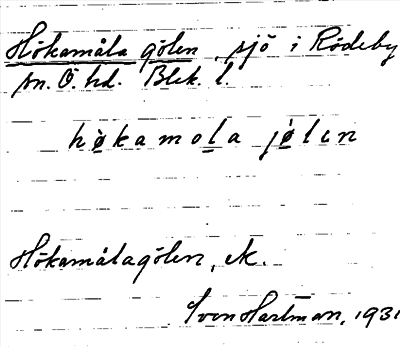 Hökamåla gölen, sjö i Rödeby
sn. Ö. hd. Blek. l.
hø̀kamola jø̀lin
Hökamålagölen, ek.
Sven Hartman, 1931